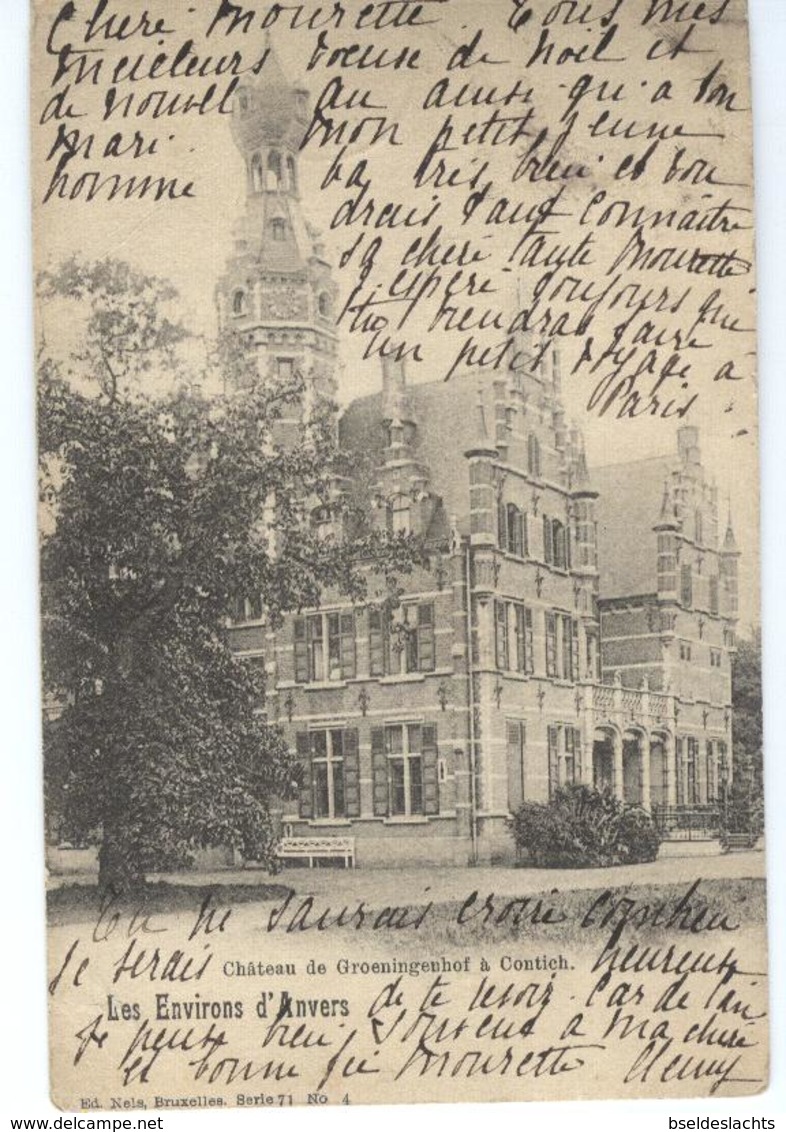 Cheré Mourette. Tous mes
meilleurs voeuse de Noil et
de nouvel an ainse qu'a ton
mari. Mon petit Jeune
homme va tris bien et vou
drais tant connaître
sa cheré tante Mourette
J'espére toujours que
tu viendras faire
un petit voyage a
Paris.
Tu ne saurais croire combien
Je serais heureuse
Château de Groeningenhof à Contich.
Les Environs d'Anvers
de te revoir. Car de loin
Je pense bien souvent a ma cheré
et bonne fie Mourette
Ed. Nels, Bruxelles. Serie 71 No 4
delcampe.net
bseldeslachts